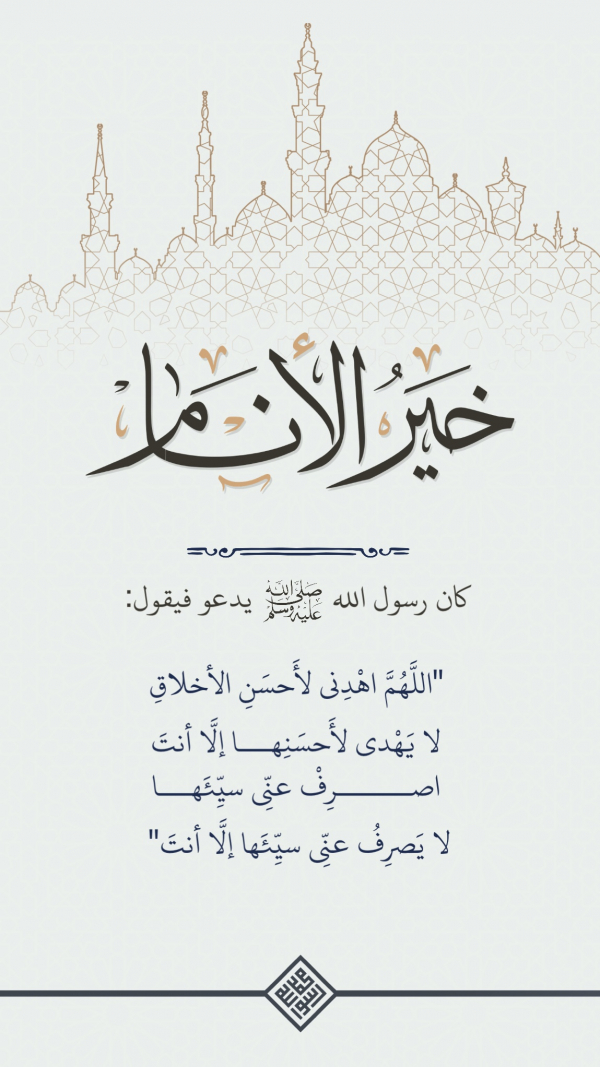 خَيرُ الأنامِ
كان رسول الله ﷺ يدعو فيقول:
"اللَّهُمَّ اهْدِنى لأَحسَنِ الأخلاقِ
لا يَهْدى لأَحسَنِهـــا إلَّا أنتَ
اصـــــــرِفْ عنِّى سيِّئَهـــا
لا يَصرِفُ عنِّى سيِّئَها إلَّا أنتَ"